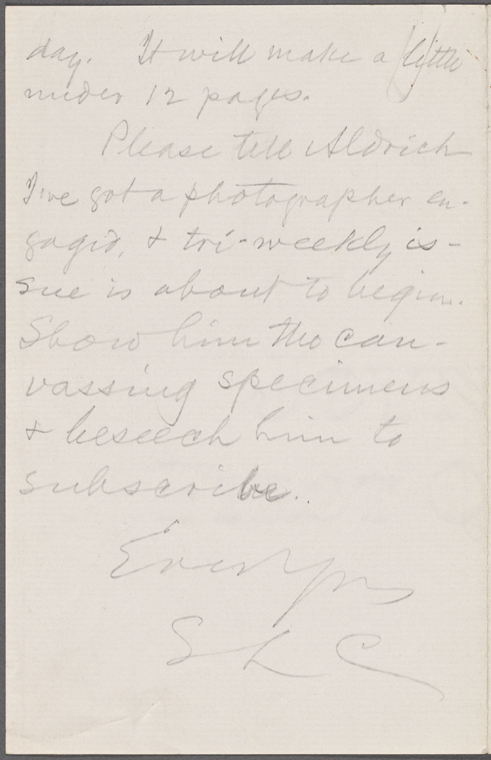 day. It will make a little
under 12 pages.
Please tell Aldrich
I've got a photographer en-
gaged, & tri-weekly is-
sue is about to begin.
Show him the can-
vassing specimens
& beseech him to
subscribe.
Ever Yrs
SLC